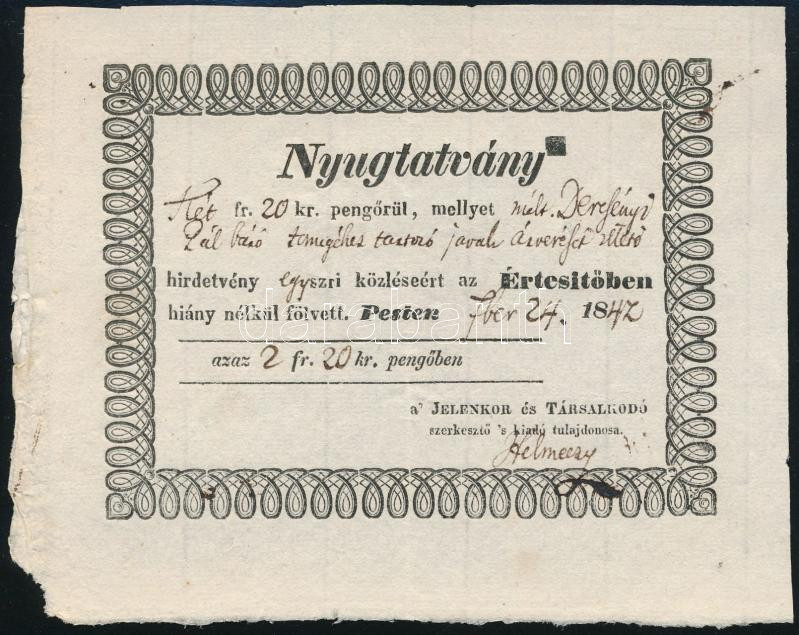 Nyugtatvány
Két fr. 20 kr. pengőrül, mellyet mélt. Dercsényi
Pál báró tömegéhez tartozó javak árverését illető
hirdetvény egyszri közléseért az Értesitőben
hiány nélkül fölvett. Pesten 7ber 24. 1842
azaz 2 fr. 20 kr. pengőben
a' JELENKOR és TÁRSALKODÓ
szerkesztő 's kiadó tulajdonosa.
Helmeczy
darabanth